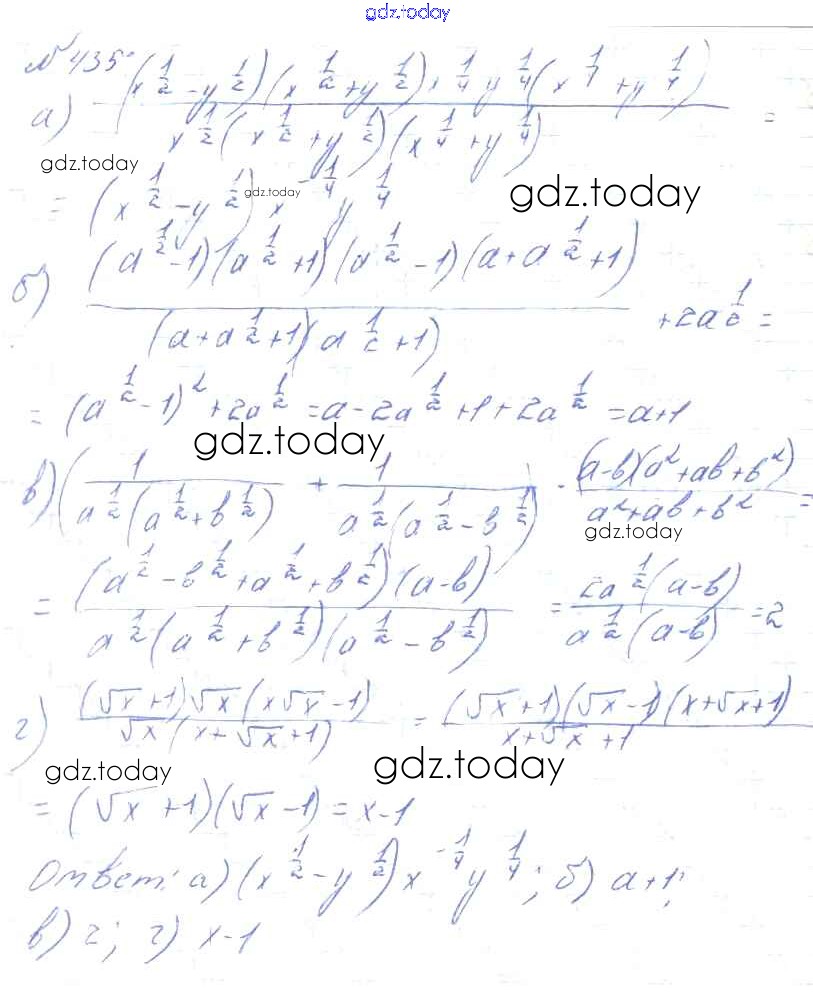 gdz.today
№ 435.
а) ((x^{1/2} - y^{1/2})(x^{1/2} + y^{1/2}) x^{1/4} y^{1/4} (x^{1/4} + y^{1/4})) / (x^{1/2}(x^{1/2} + y^{1/2})(x^{1/4} + y^{1/4})) =
gdz.today
= (x^{1/2} - y^{1/2}) x^{-1/4} y^{1/4}
gdz.today
gdz.today
б) ((a^{1/2} - 1)(a^{1/2} + 1)(a^{1/2} - 1)(a + a^{1/2} + 1)) / ((a + a^{1/2} + 1)(a^{1/2} + 1)) + 2a^{1/2} =
= (a^{1/2} - 1)^2 + 2a^{1/2} = a - 2a^{1/2} + 1 + 2a^{1/2} = a + 1
gdz.today
в) (1 / (a^{1/2}(a^{1/2} + b^{1/2})) + 1 / (a^{1/2}(a^{1/2} - b^{1/2}))) · ((a - b)(a^2 + ab + b^2)) / (a^2 + ab + b^2) =
gdz.today
= ((a^{1/2} - b^{1/2} + a^{1/2} + b^{1/2})(a - b)) / (a^{1/2}(a^{1/2} + b^{1/2})(a^{1/2} - b^{1/2})) = (2a^{1/2}(a - b)) / (a^{1/2}(a - b)) = 2
г) ((√x + 1)√x(x√x - 1)) / (√x(x + √x + 1)) = ((√x + 1)(√x - 1)(x + √x + 1)) / (x + √x + 1)
gdz.today
gdz.today
= (√x + 1)(√x - 1) = x - 1
Ответ: а) (x^{1/2} - y^{1/2}) x^{-1/4} y^{1/4}; б) a + 1;
gdz.today
в) 2; г) x - 1